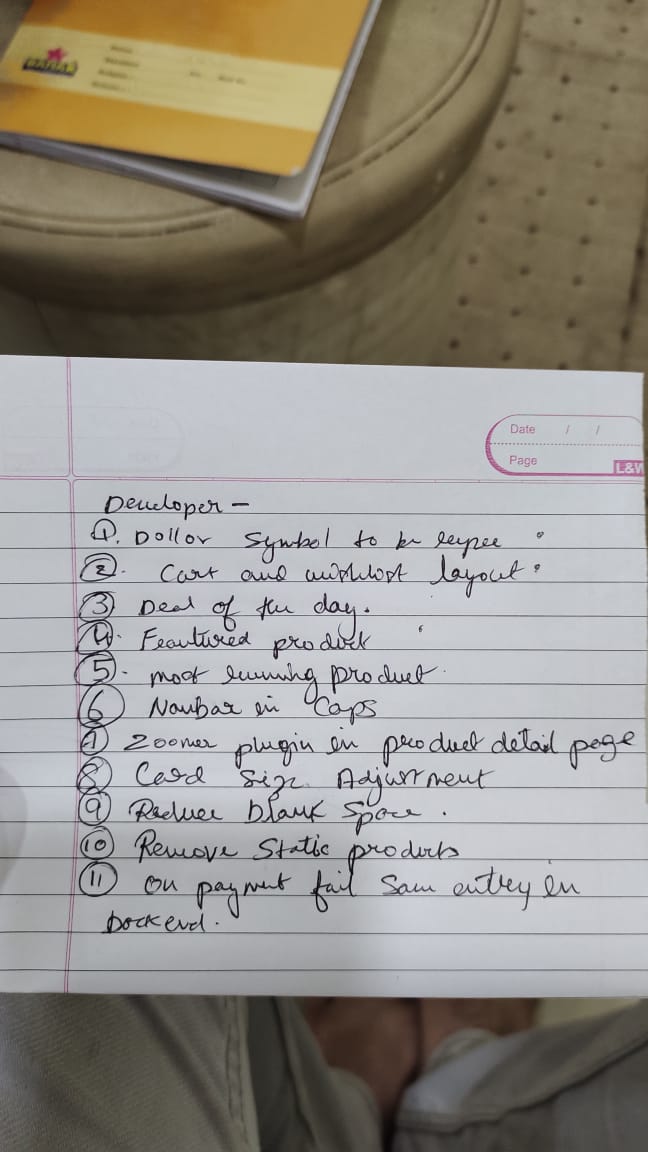 Date / /
Page
L&W
Developer -
1. Dollor Symbol to be rupee
2. Cart and wishlist layout
3 Deal of the day.
4. Feautured product
5. most running product.
6 Navbar in Caps
7 Zoomer plugin in product detail page
8 Card Size Adjustment
9 Reduce blank Space.
10 Remove Static products
11 On payment fail Same entry in
backend.